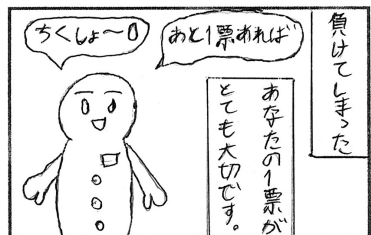 負けてしまった
あと1票あれば
ちくしょ〜0
あなたの1票が
とても大切です。